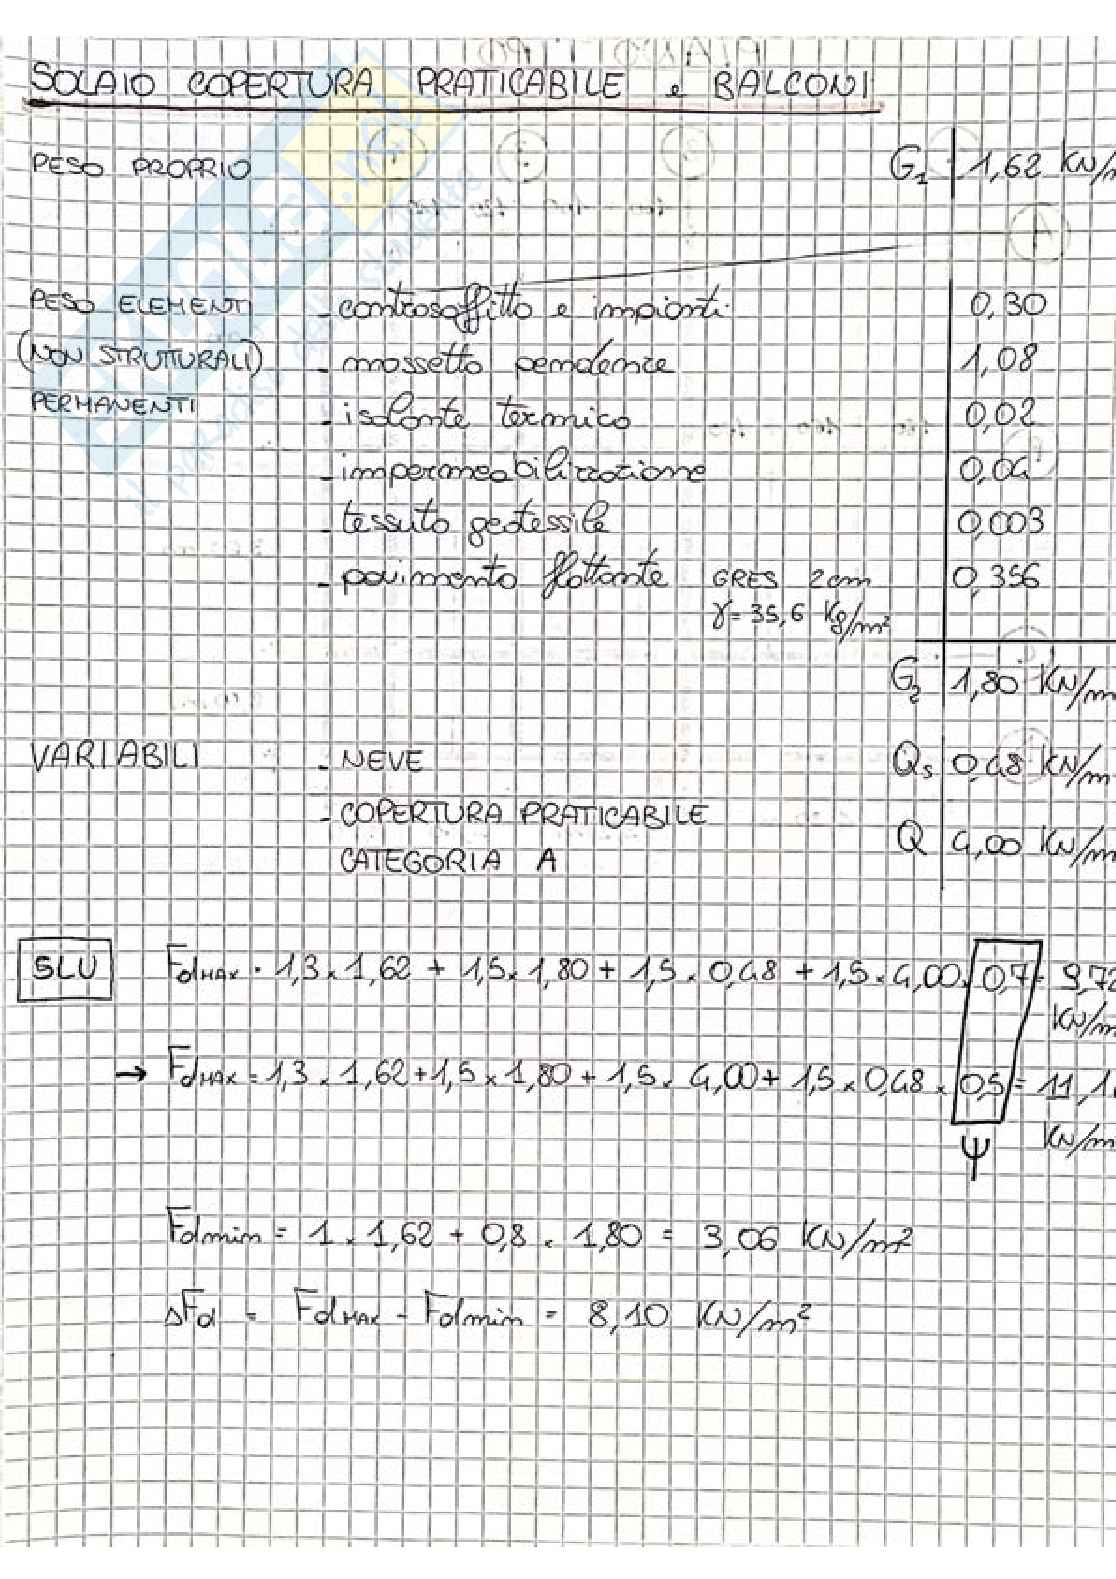 SOLAIO COPERTURA PRATICABILE e BALCONI
PESO PROPRIO G1 1,62 KN/m
PESO ELEMENTI - controsoffitto e impianti 0,30
(NON STRUTTURALI) - massetto pendenze 1,08
PERMANENTI - isolante termico 0,02
- impermeabilizzazione 0,04
- tessuto geotessile 0,003
- pavimento flottante GRES 2cm 0,356
γ = 35,6 Kg/m²
G2 1,80 KN/m
VARIABILI - NEVE Qs 0,48 KN/m
- COPERTURA PRATICABILE
CATEGORIA A Q 4,00 KN/m
SLU FdMAX = 1,3 x 1,62 + 1,5 x 1,80 + 1,5 x 0,48 + 1,5 x 4,00 x 0,7 = 9,72
KN/m
→ FdMAX = 1,3 x 1,62 + 1,5 x 1,80 + 1,5 x 4,00 + 1,5 x 0,48 x 0,5 = 11,1
KN/m
Ψ
Fdmin = 1 x 1,62 + 0,8 x 1,80 = 3,06 KN/m²
ΔFd = FdMAX - Fdmin = 8,10 KN/m²